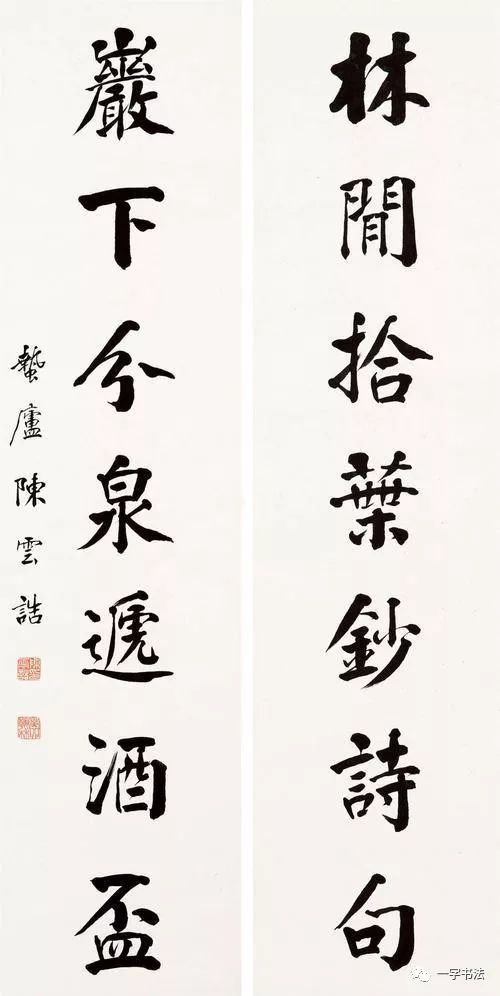 林間拾葉鈔詩句
巖下分泉遞酒盃
蟄廬陳雲誥
一字书法